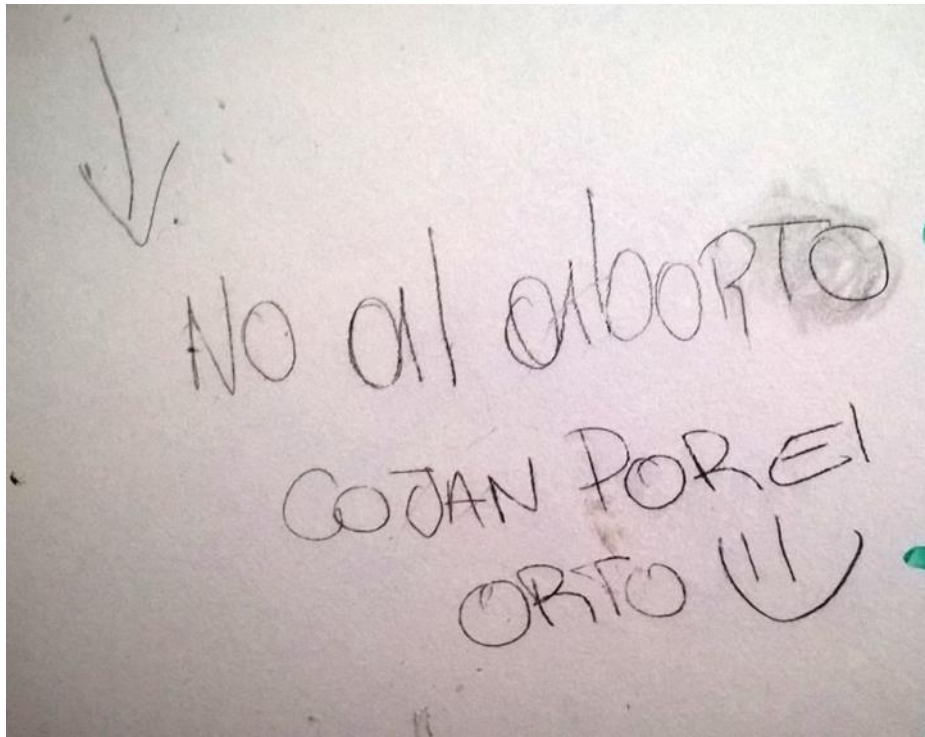 No al abORTO
COJAN POR El
ORTO